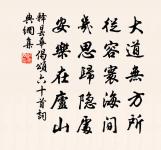 大道無方所
從容寰海間
幾思歸隱處
安樂在廬山
釋曇華偈頌六十首詞
典網集